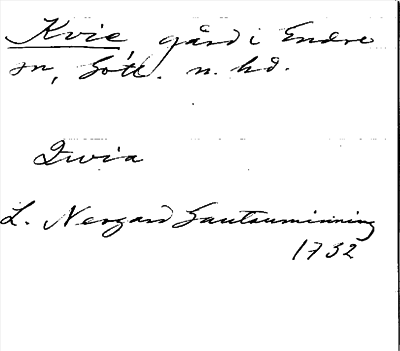 Kvie, gård i Endre
sn, Gotl. n. hd.
Qwia
L. Nergard Gautauminning
1732